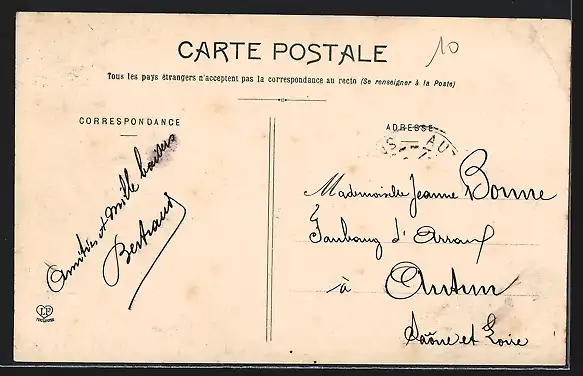 CARTE POSTALE
10
Tous les pays étrangers n'acceptent pas la correspondance au recto (Se renseigner à la Poste)
CORRESPONDANCE
Amitiés et mille baisers
Bertrand
LP
ADRESSE
AUT
Mademoiselle Jeanne Bonne
Faubourg d'Arroux
à Autun
Saône et Loire